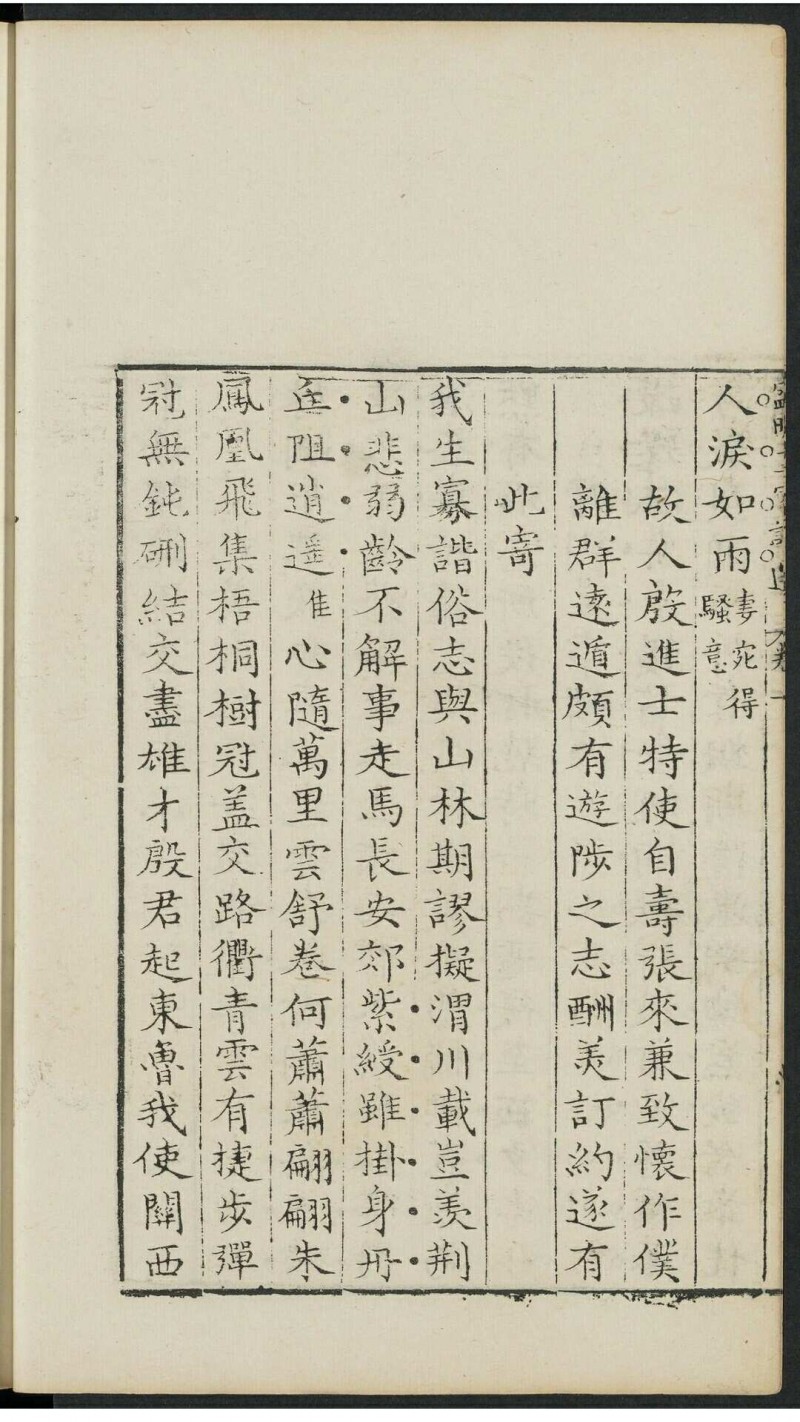 人淚如雨淒宛得騷意
故人殷進士特使自壽張來兼致懷作僕
離群遠遁頗有遊陟之志酬美訂約遂有
此寄
我生寡諧俗志與山林期謬擬渭川載豈羨荆
山悲弱齡不解事走馬長安郊紫綬雖掛身丹
阻逍遥隹心隨萬里雲舒卷何蕭蕭翩翩朱
鳳凰飛集梧桐樹冠盖交路衢青雲有捷步彈
冠無鈍硎結交盡雄才殷君起東魯我使關西